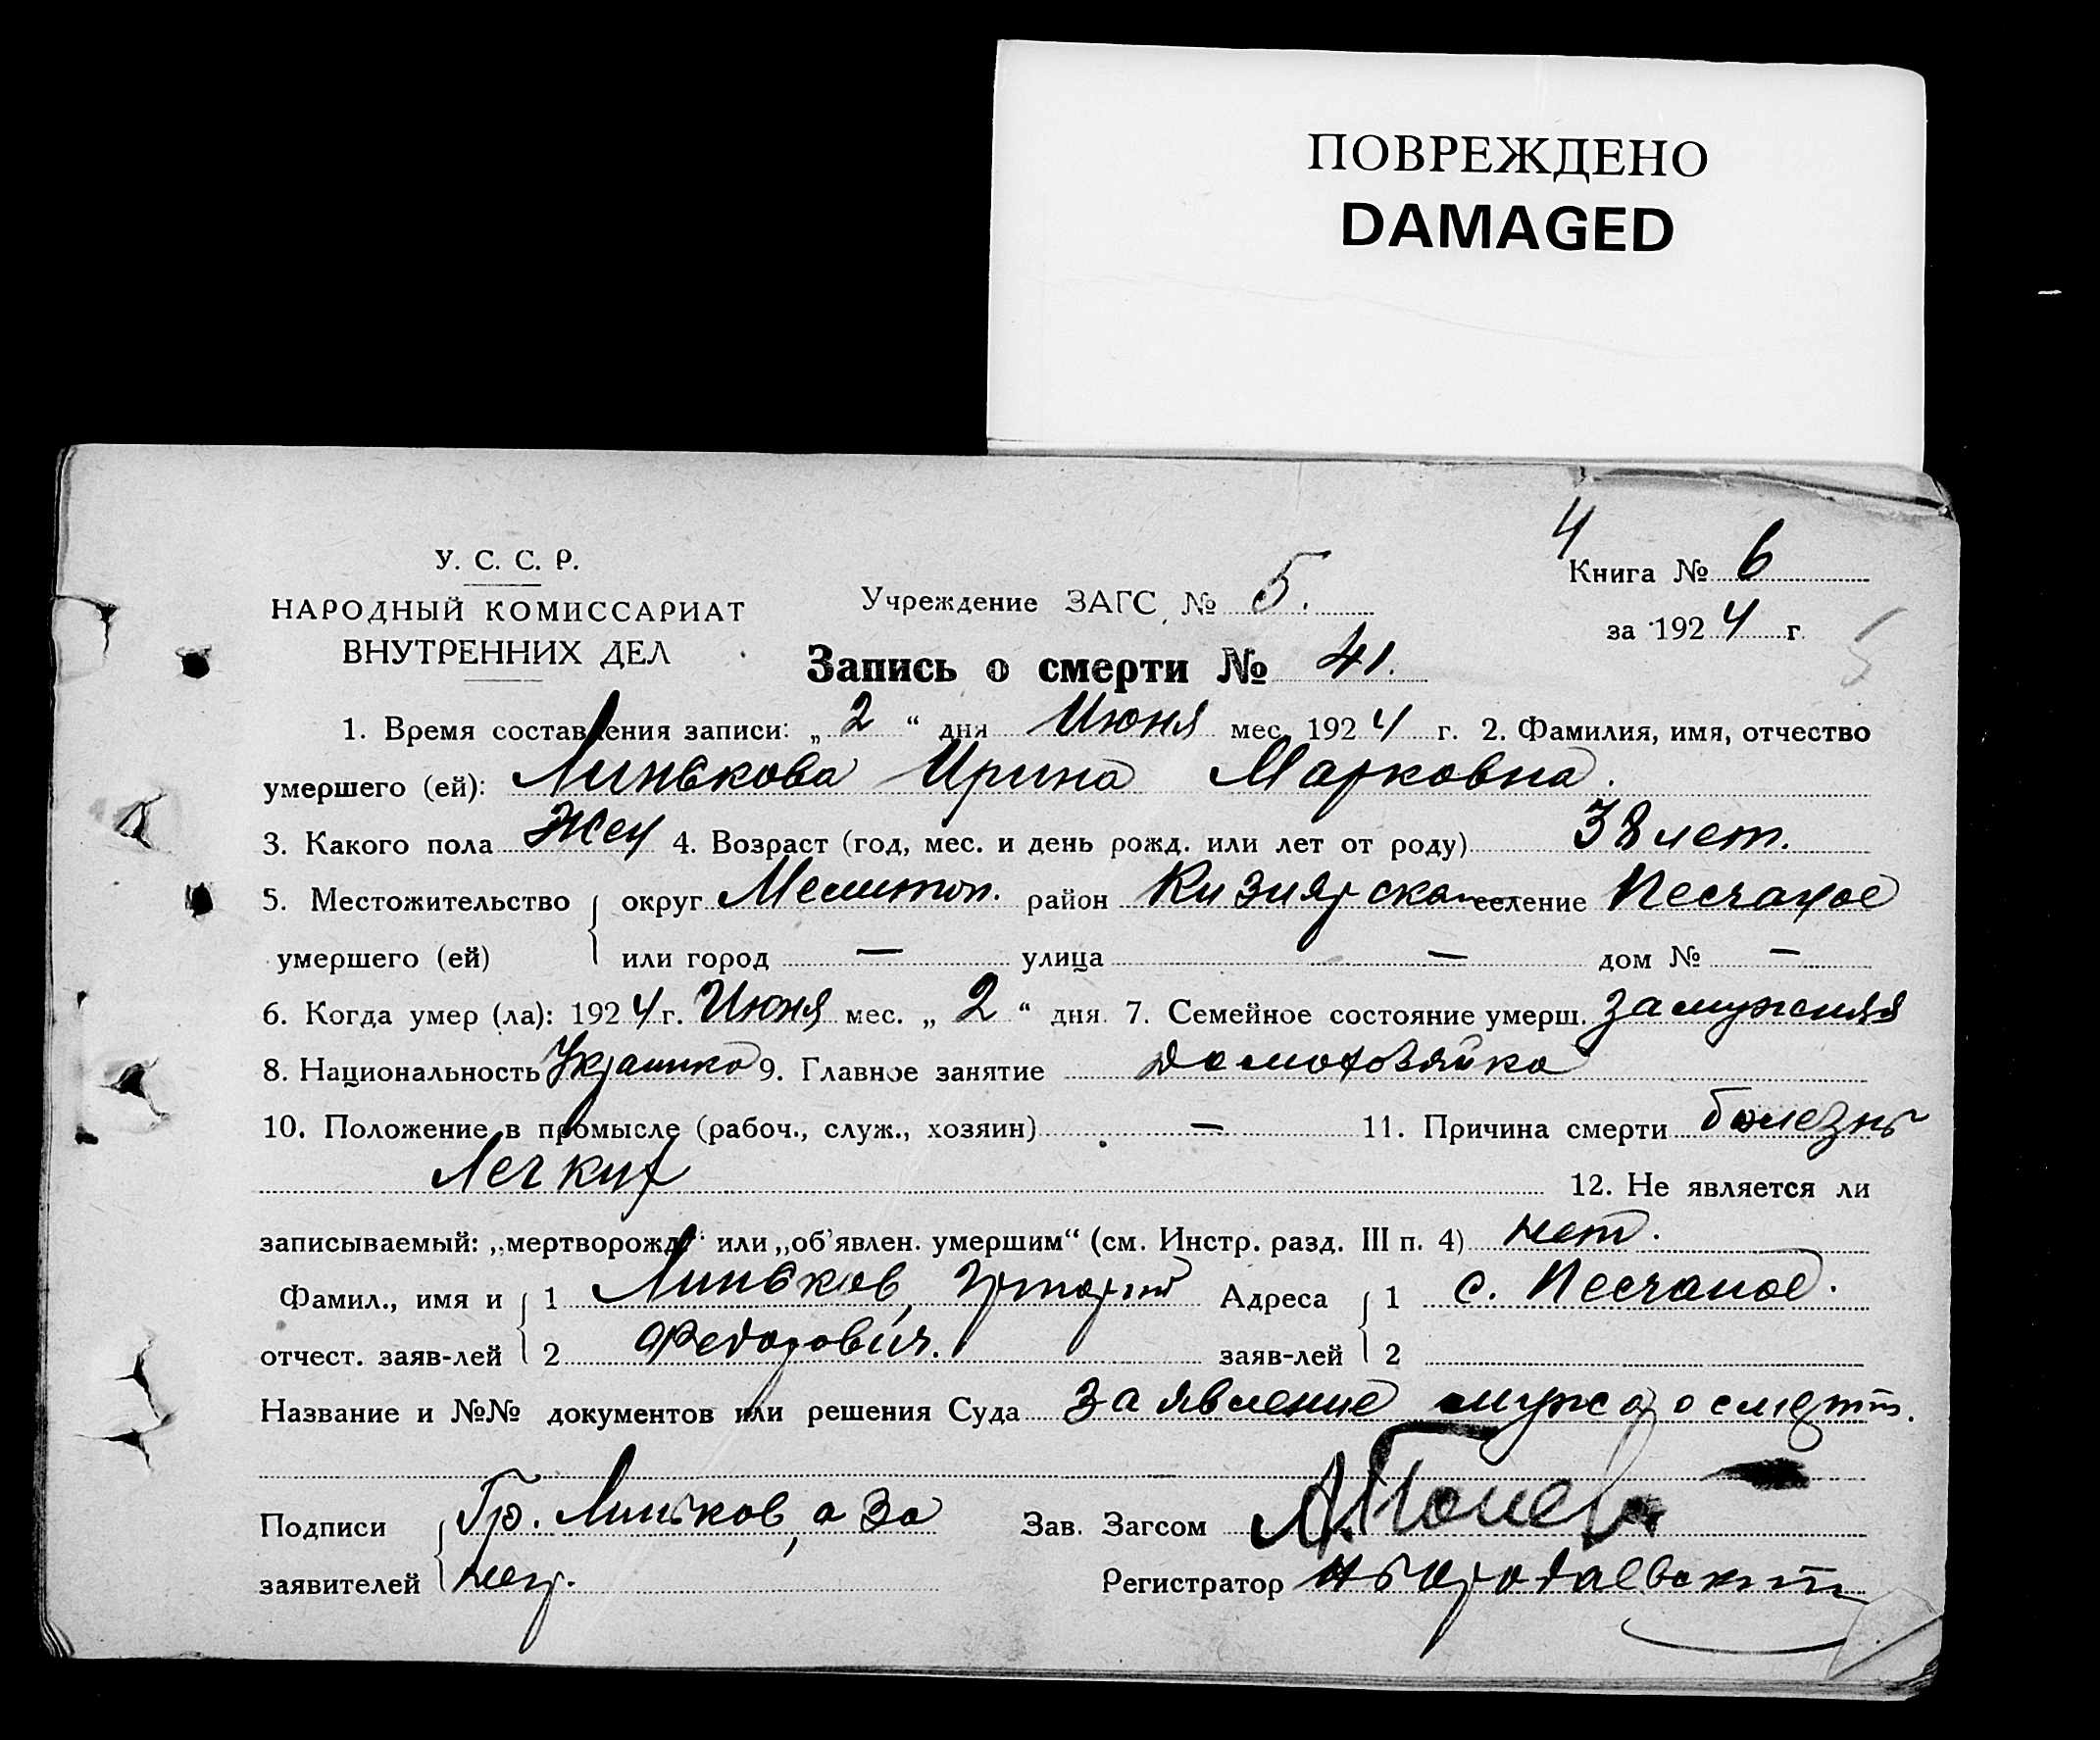 ПОВРЕЖДЕНО
DAMAGED
4
У. С. С. Р.
НАРОДНЫЙ КОМИССАРИАТ
ВНУТРЕННИХ ДЕЛ
Учреждение ЗАГС № 5.
Книга № 6
за 1924 г.
5
Запись о смерти № 41.
1. Время составления записи: „2“ дня Июня мес. 1924 г. 2. Фамилия, имя, отчество
умершего (ей): Линькова Ирина Марковна.
3. Какого пола Жен 4. Возраст (год, мес. и день рожд. или лет от роду) 38 лет.
5. Местожительство умершего (ей) округ Мелитоп. район Кизиярск селение Песчаное
или город — улица — дом № —
6. Когда умер (ла): 1924 г. Июня мес. „2“ дня. 7. Семейное состояние умерш. замужняя
8. Национальность Украинка 9. Главное занятие домохозяйка
10. Положение в промысле (рабоч., служ., хозяин) — 11. Причина смерти болезнь
Легких 12. Не является ли
записываемый: „мертворожд“ или „об'явлен. умершим“ (см. Инстр. разд. III п. 4) нет.
Фамил., имя и отчест. заяв-лей 1 Линьков, Григорий Адреса заяв-лей 1 с. Песчаное.
2 Федорович. 2
Название и №№ документов или решения Суда Заявление мужа о смерти.
Подписи заявителей Гр. Линьков, а за
негр.
Зав. Загсом
Регистратор